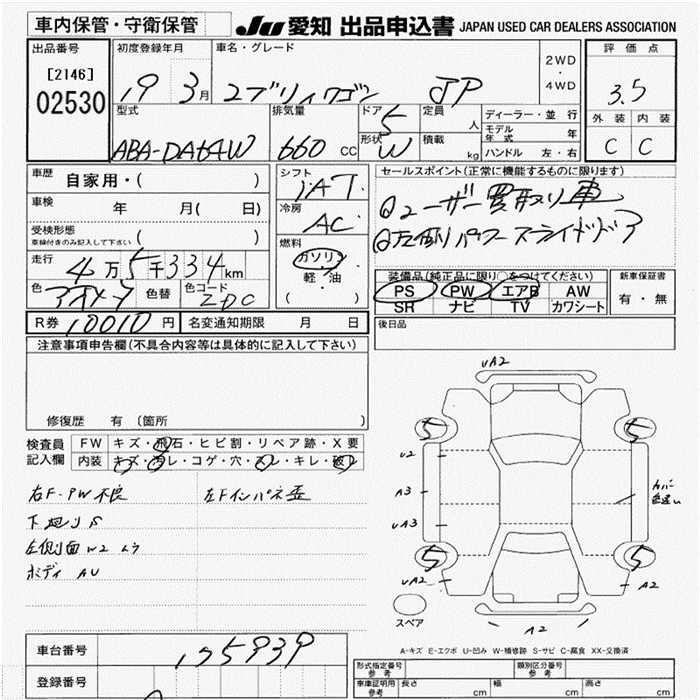 車内保管・守衛保管
JU 愛知 出品申込書 JAPAN USED CAR DEALERS ASSOCIATION
出品番号
[2146]
02530
初度登録年月 車名・グレード
19 3月 エブリィワゴン JP
2WD
・
4WD
評価点
3.5
外装 内装
C C
型式 排気量 ドア 定員 ディーラー・並行
ABA-DA64W 660 CC 5 人
形状 W 積載 kg
モデル年式 年
ハンドル 左・右
車歴 自家用・( )
車検 年 月( 日)
受検形態 ( )
車検付きのみ記入して下さい
走行 4万5千334km
色 色替 色コード ZDC
R券 10010円 名変通知期限 月 日
シフト
IAT
冷房
AC
燃料
ガソリン
軽・油
( )
セールスポイント(正常に機能するものに限ります)
①ユーザー買取り車
②左側パワースライドドア
装備品(純正品に限り〇をつけてください)
PS PW エアB AW
SR ナビ TV カワシート
新車保証書
有・無
後日品
注意事項申告欄(不具合内容等は具体的に記入して下さい)
修復歴 有 〔箇所 〕
検査員記入欄
FW キズ・飛石・ヒビ割・リペア跡・X要
内装 キズ・汚レ・コゲ・穴・スレ・キレ・破レ
右F-PW不良 左Fインパネ歪
下廻りS
左側面W2
ボディ AU
UA2
5 5
U2
A3
UA3
カバー
色違い
5 5
UA2
A2
A2
スペア
A-キズ E-エクボ U-凹み W-補修跡 S-サビ C-腐食 XX-交換済
車台番号 175939
登録番号
形式指定番号 参考 類別区分番号 参考
車庫証明用 参考 長さ cm 幅 cm 高さ cm